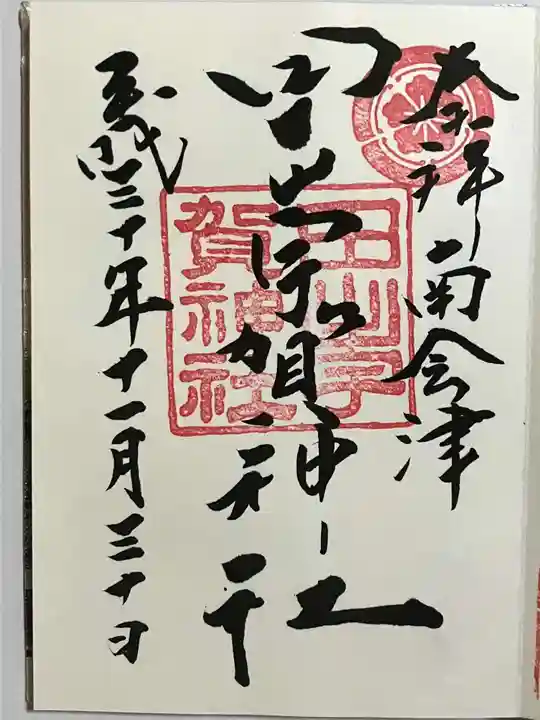 奉拝 南会津
田出宇賀神社
三十年十一月三十日
田出宇
賀神社